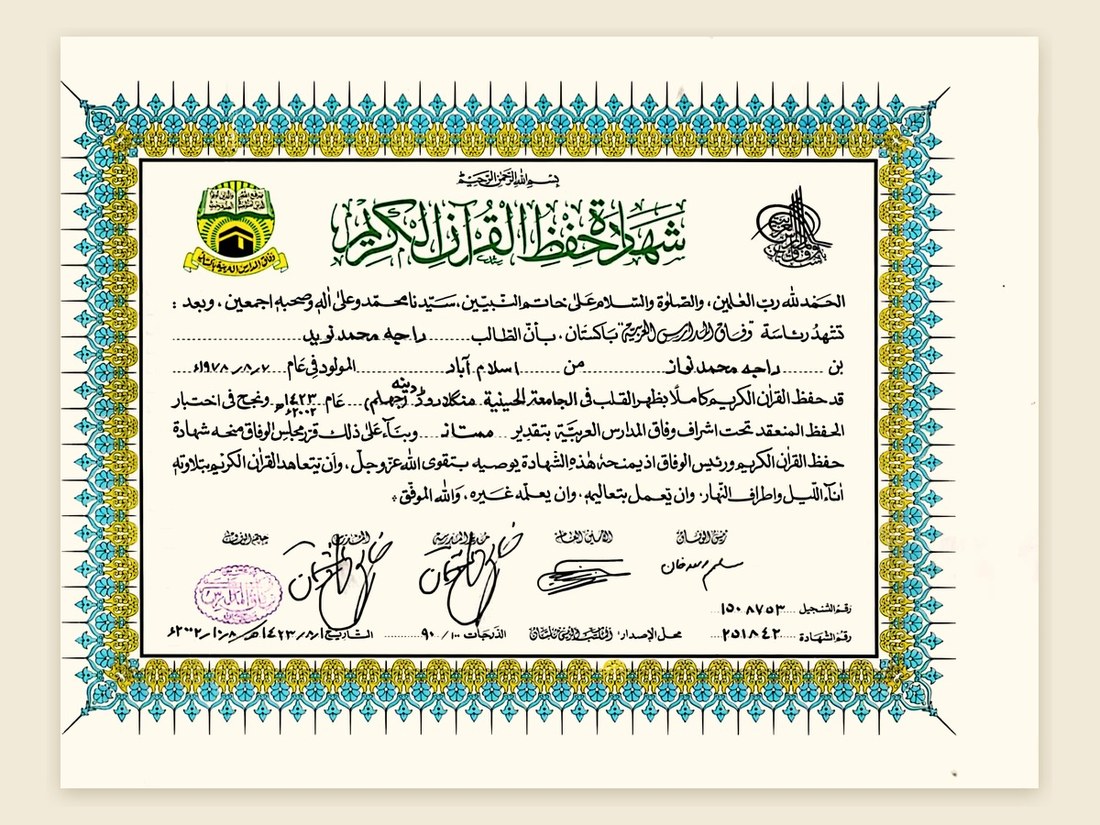 بسم الله الرحمن الرحيم
شهادة حفظ القرآن الكريم
وفاق المدارس العربية باكستان
الحمد لله رب العٰلمين، والصلوٰة والسلام علىٰ خاتم النبيين، سيدنا محمد وعلىٰ آله وصحبه اجمعين، وبعد :
تشهد رئاسة وفاق المدارس العربية باكستان، بأن الطالب راجه محمد نويد
بن راجه محمد نواز من اسلام آباد المولود في عام ٧/٨/١٩٧٨ء
قد حفظ القرآن الكريم كاملاً بظهر القلب في الجامعة الحنيفية منگلا روڈ دينه (جهلم) عام ١٤٢٣ھ ٢٠٠٢ء ونجح في اختبار
الحفظ المنعقد تحت اشراف وفاق المدارس العربية بتقدير ممتاز وبناءً على ذلك قرر مجلس الوفاق منحه شهادة
حفظ القرآن الكريم ورئيس الوفاق اذ يمنحه هٰذه الشهادة يوصيه بتقوى الله عز وجل، وأن يتعاهد القرآن الكريم بتلاوته
آناء الليل واطراف النهار، وان يعمل بتعاليمه، وان يعلمه غيره، والله الموفق
رئيس الوفاق الامين العام مدير المدرسة الممتحن خاتم الوفاق
سليم الله خان
رقم التسجيل ١٥٠٨٧٥٣
رقم الشهادة ٢٥١٨٤٢ محل الإصدار: الدرجات ٩٠/١٠٠ التاريخ ١/٨/١٤٢٣ھ ٨/١٠/٢٠٠٢ء